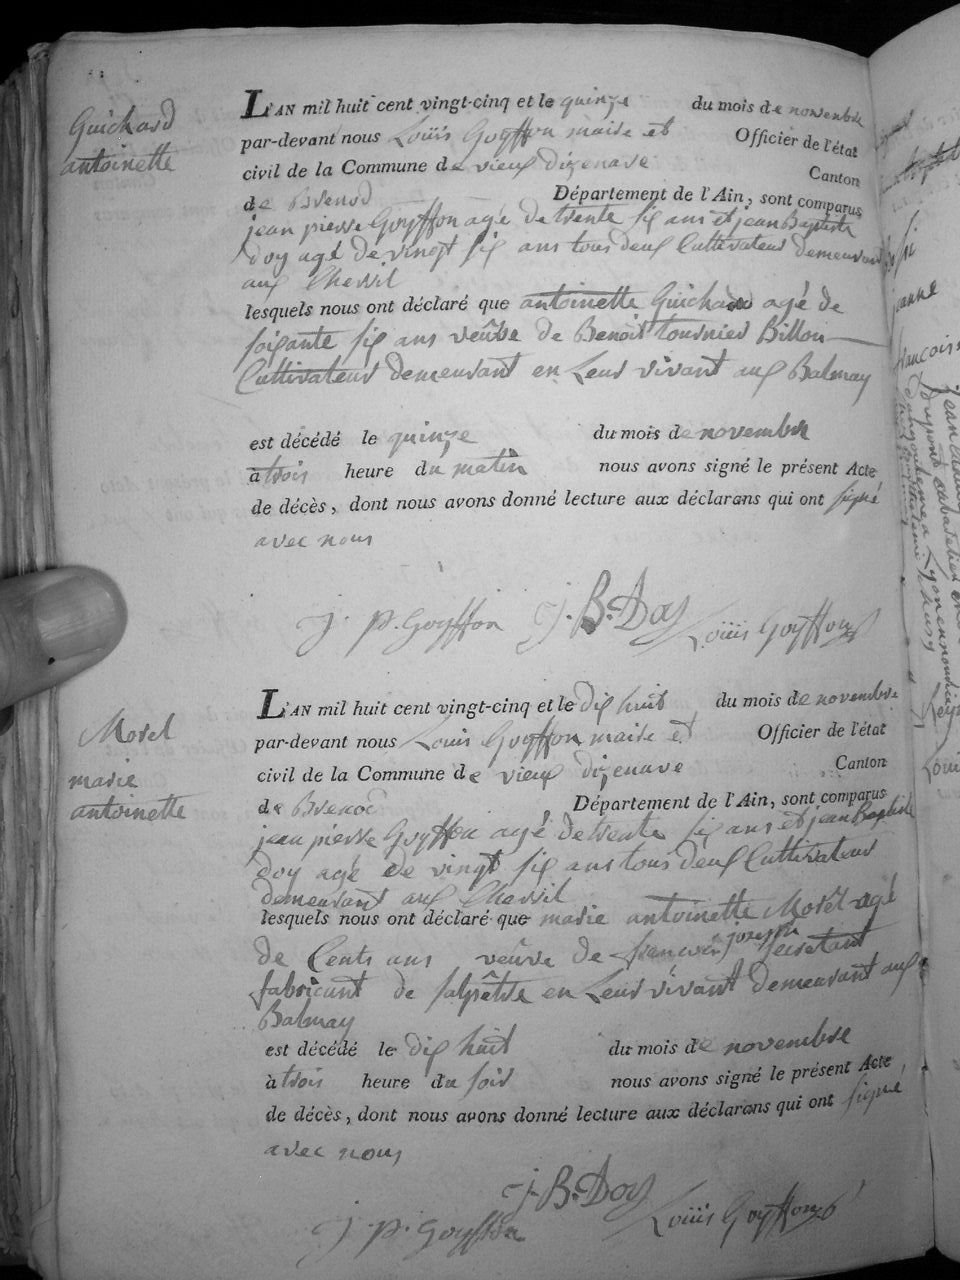 Guichard
antoinette
L'AN mil huit cent vingt-cinq et le quinze du mois de novembre
par-devant nous Louïs Goyffon maire et Officier de l'état
civil de la Commune de vieux dizenave Canton
de Brenod Département de l'Ain, sont comparus
jean pierre Goyffon agé de trente six ans et jean Baptiste
Doy agé de vingt six ans tous deux Cultivateur demeurant
aux Chevril
lesquels nous ont déclaré que antoinette Guichard agé de
soixante six ans veûve de Benoit tournier Billon
Cultivateur demeurant en Leur vivant aux Balmay
est décédé le quinze du mois de novembre
à trois heure du matin nous avons signé le présent Acte
de décès, dont nous avons donné lecture aux déclarans qui ont signé
avec nous
J. P. Goyffon J. B. Doy Louïs Goyffon
Morel
marie
antoinette
L'AN mil huit cent vingt-cinq et le dix huit du mois de novembre
par-devant nous Louis Goyffon maire et Officier de l'état
civil de la Commune de vieux dizenave Canton
de Brenod Département de l'Ain, sont comparus
jean pierre Goyffon agé de trente six ans et jean Baptiste
doy agé de vingt six ans tous deux Cultivateur
demeurant aux Chevril
lesquels nous ont déclaré que marie antoinette Morel agé
de Cents ans veûve de francois joseph secretant
fabricant de salpêtre en Leur vivant demeurant aux
Balmay
est décédé le dix huit du mois de novembre
à trois heure du soir nous avons signé le présent Acte
de décès, dont nous avons donné lecture aux déclarans qui ont signé
avec nous
J. B. Doy
J. P. Goyffon Louïs Goyffon
jeanne
francois